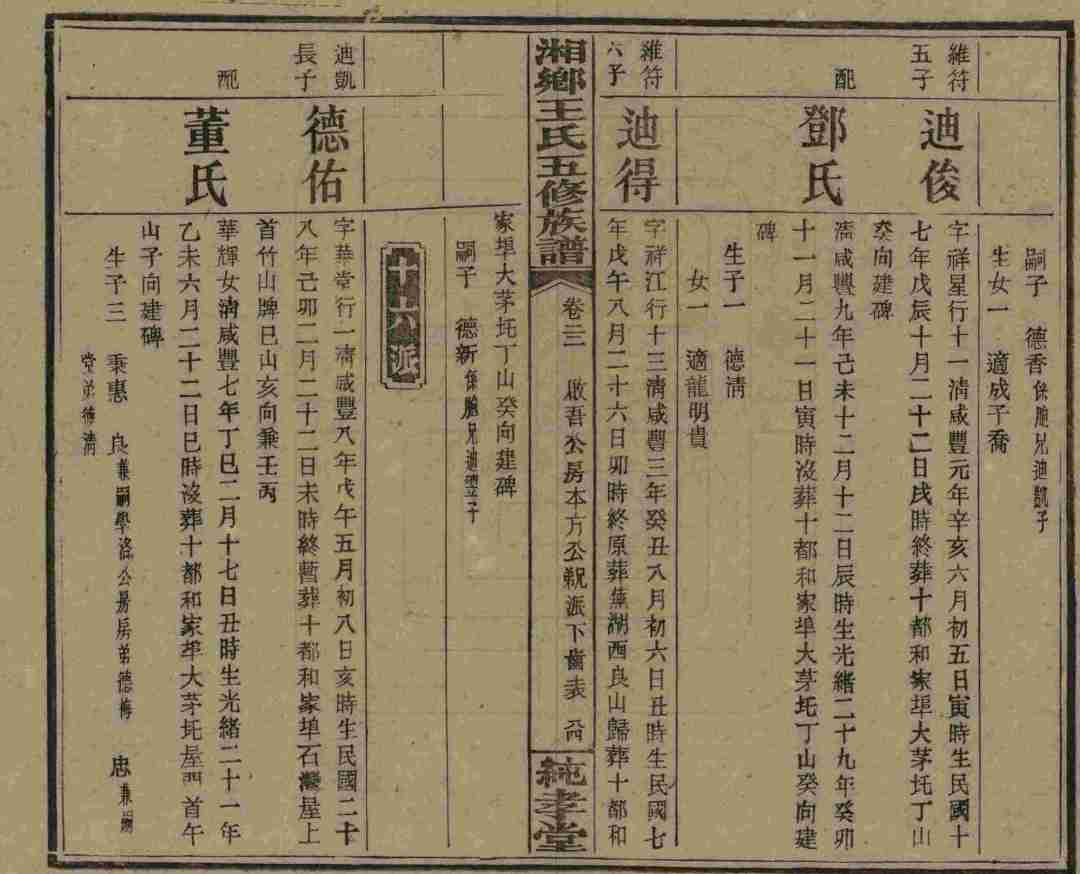 嗣子　德香係胞兄迪凱子
生女一　適成子喬
維符
五子
迪俊
字祥星行十一清咸豐元年辛亥六月初五日寅時生民國十
七年戊辰十月二十二日戌時終葬十都和家埠大茅坵丁山
癸向建碑
配
鄧氏
清咸豐九年己未十二月十二日辰時生光緒二十九年癸卯
十一月二十一日寅時沒葬十都和家埠大茅坵丁山癸向建
碑
生子一　德清
女一　適龍明貴
維符
六子
迪得
字祥江行十三清咸豐三年癸丑八月初六日丑時生民國七
年戊午八月二十六日卯時終原葬蕪湖西良山歸葬十都和
湘鄉王氏五修族譜
卷三　啟吾公房本方公　派下齒表
純孝堂
家埠大茅坵丁山癸向建碑
嗣子　德新係胞兄迪　子
六派
迪凱
長子
德佑
字華堂行一清咸豐八年戊午五月初八日亥時生民國二十
八年己卯二月二十二日未時終暫葬十都和家埠石灣屋上
首竹山牌巳山亥向兼壬丙
配
董氏
華輝女清咸豐七年丁巳二月十七日丑時生光緒二十一年
乙未六月二十二日巳時沒葬十都和家埠大茅坵屋門首午
山子向建碑
生子三　秉惠　良兼嗣學洛公房房弟德梅　忠兼嗣
堂弟德清